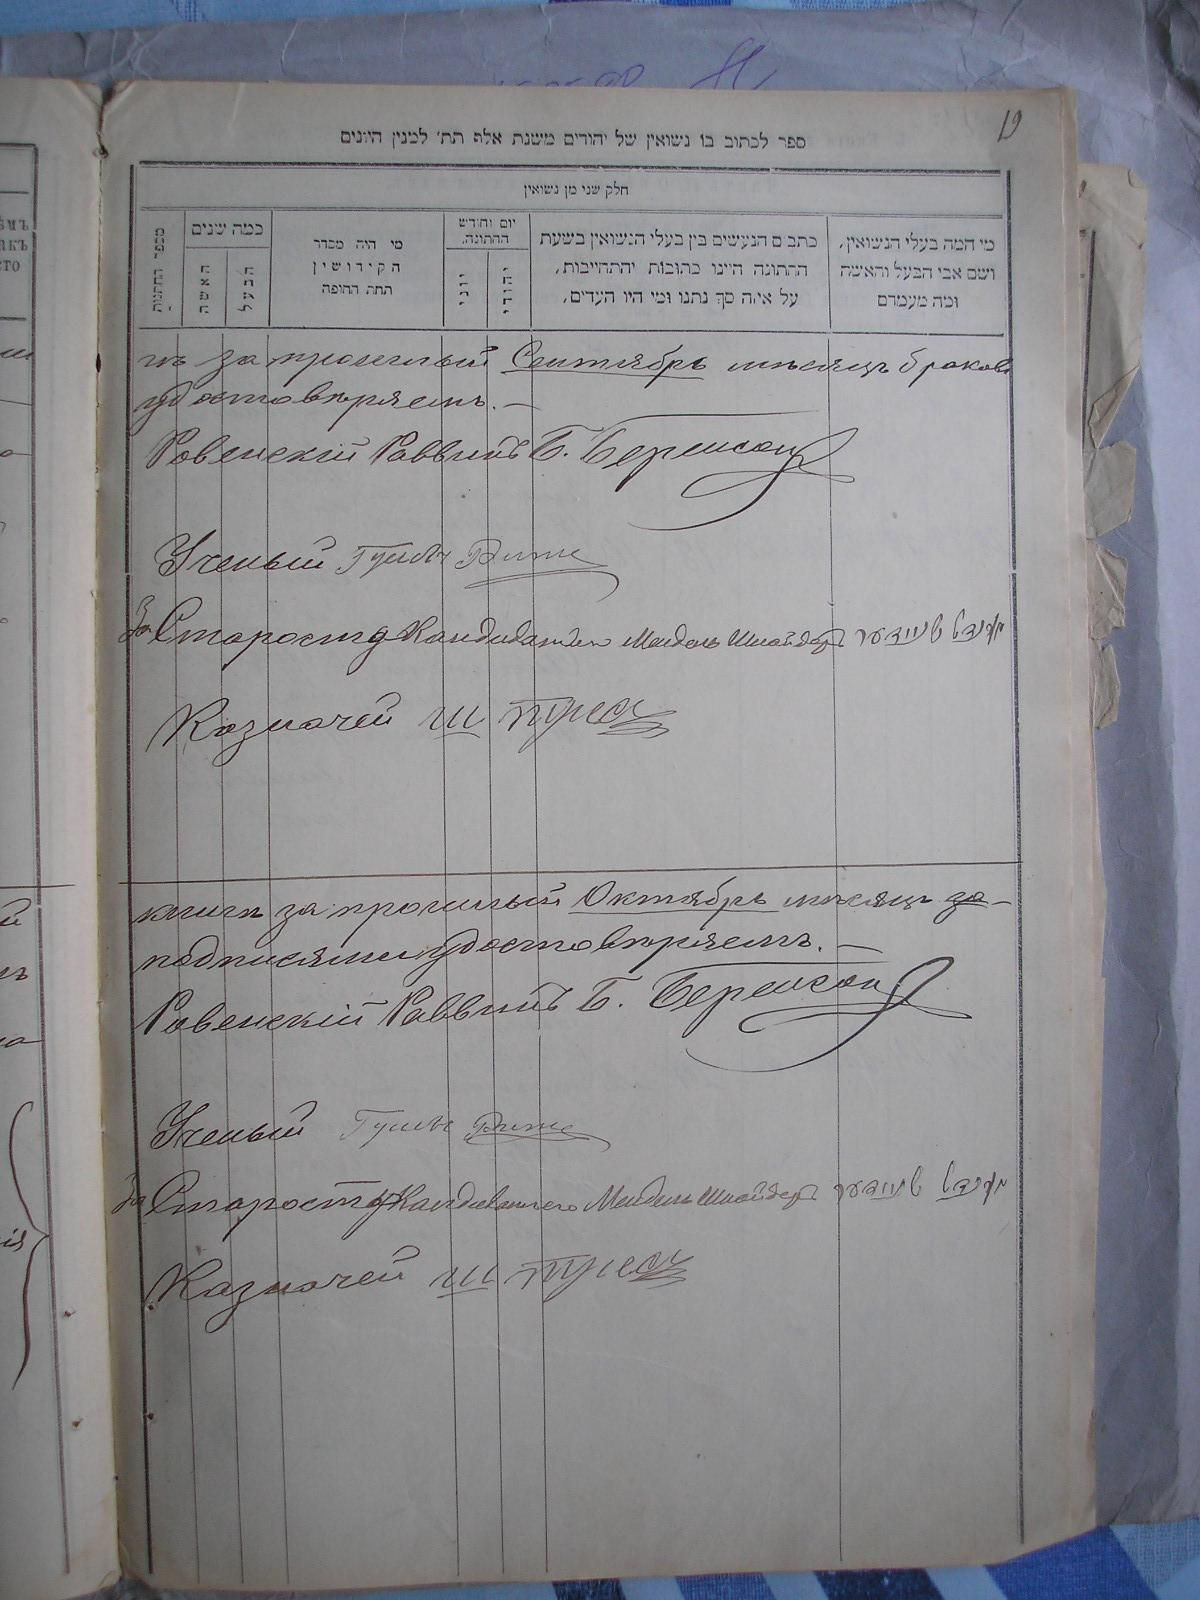 19
ספר לכתוב בו נשואין של יהודים משנת אלף תת׳ למנין היונים
חלק שני מן נשואין
מי המה בעלי הנשואין,
ושם אבי הבעל והאשה
ומה מעמדם
כתבים הנעשים בין בעלי הנשואין בשעת
החתונה היינו כתובות והתחייבות,
על איזה סך נתנו ומי היו העדים,
יום וחודש
החתונה.
יהודי
יוני
מי היה מסדר
הקידושין
תחת החופה
כמה שנים
הבעל
האשה
מספר החתונות
за прошлый Сентябрь мѣсяцъ браковъ
удостовѣряемъ. —
Ровенскій Раввинъ Б. Беренсон
Ученый
За Старосту Кандидат Мендель Шнайдер מענדל שניידער
Казначей Ш
книги за прошлый Октябрь мѣсяцъ за-
подписями удостовѣряемъ. —
Ровенскій Раввинъ Б. Беренсон
Ученый
За Старосту Мендель Шнайдер מענדל שניידער
Казначей Ш